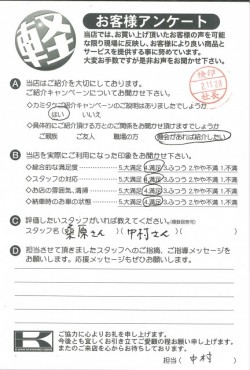 軽
お客様アンケート
当店では、お買い上げ頂いたお客様の声を可能
な限り現場に反映し、お客様により良い商品と
サービスを提供する事に努めています。
大変お手数ですが是非お声をお聞かせ下さい。
A 当店はご紹介を大切にしております。
ご紹介キャンペーンについてお聞かせ下さい。
・カミタケご紹介キャンペーンのご説明はありましたでしょうか
はい いいえ
・具体的にご紹介頂ける方との関係をお聞かせ頂けますでしょうか
ご親族 ご友人 職場の方 機会があれば紹介したい
B 当店を実際にご利用になった印象をお聞かせ下さい。
総合的な満足度 5.大満足 4.満足 3.ふつう 2.やや不満 1.不満
スタッフの対応 5.大満足 4.満足 3.ふつう 2.やや不満 1.不満
お店の雰囲気、清掃 5.大満足 4.満足 3.ふつう 2.やや不満 1.不満
納車時のお車の状態 5.大満足 4.満足 3.ふつう 2.やや不満 1.不満
C 評価したいスタッフがいれば教えてください。(複数回答可)
スタッフ名(桑原さん)(中村さん)
D 担当させて頂きましたスタッフへのご指摘、ご指導メッセージを
お願いします。応援メッセージもぜひお願いします。
K
ご協力に心よりお礼を申し上げます。
今後とも宜しくお引き立てご愛顧の程お願い申し上げます。
またのご来店を心からお待ちしております。
担当(中村)